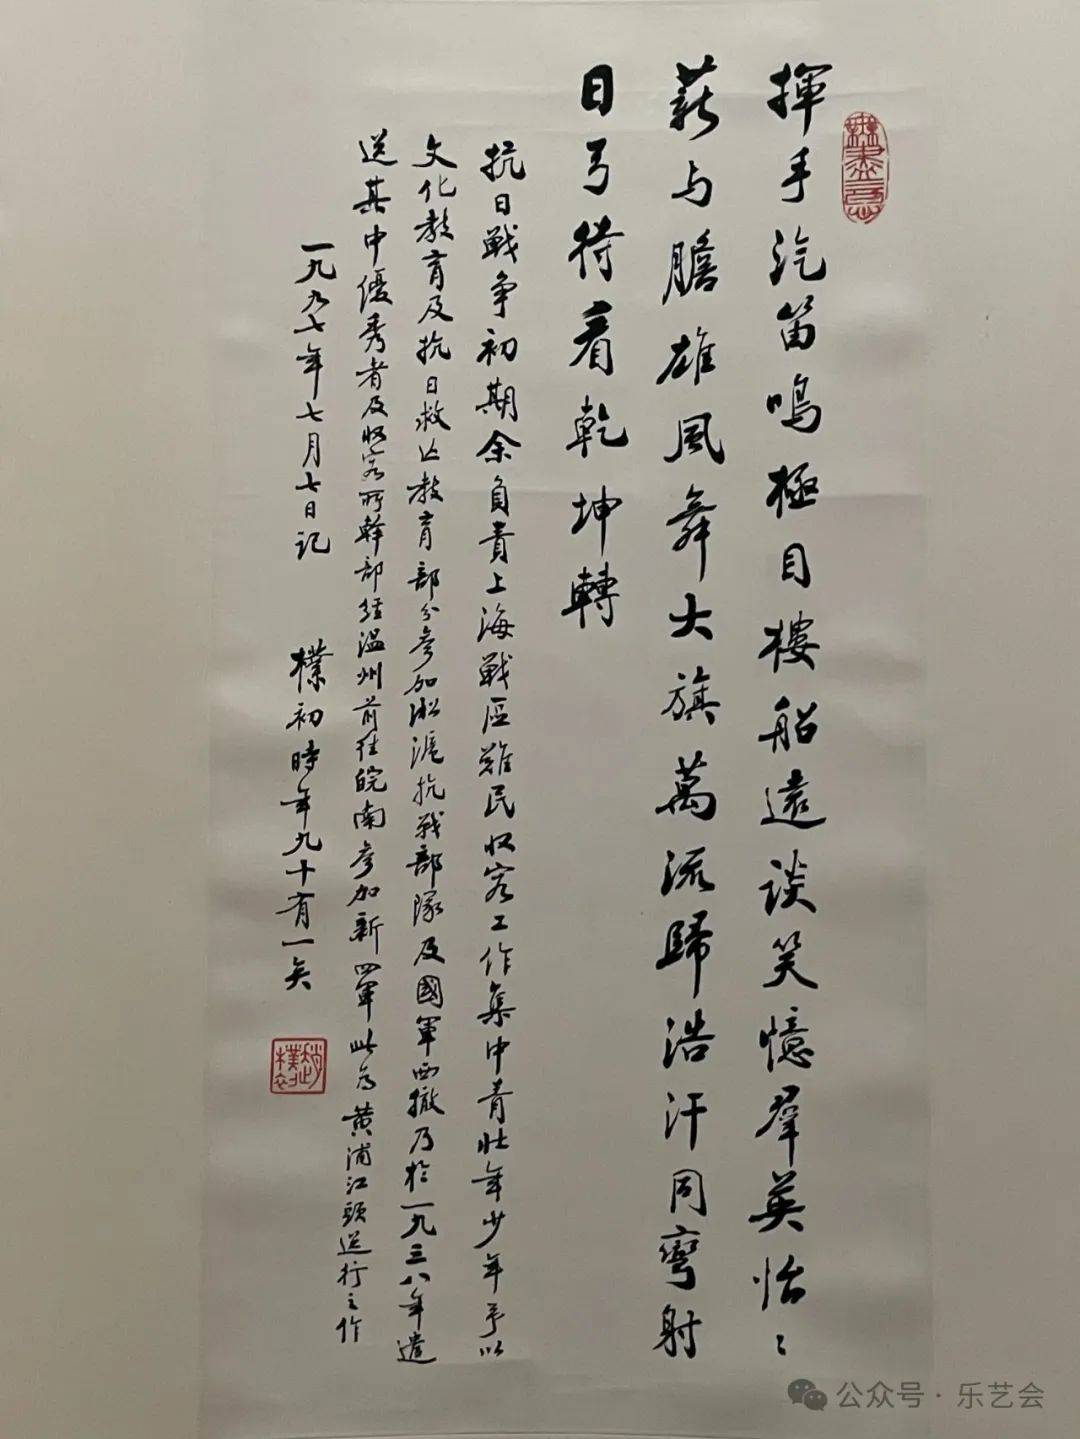 揮手汽笛鳴極目樓船遠談笑憶羣英怡〻
薪与膽雄風舞大旗萬流歸浩汗同彎射
日弓待看乾坤轉
抗日戰争初期余負責上海戰区難民收容工作集中青壯年少年予以
文化教育及抗日救亡教育部分参加淞滬抗战部隊及國軍西撤乃於一九三八年遣
送其中優秀者及收容所幹部經温州前往皖南参加新四軍此为黄浦江頭送行之作
一九九七年七月七日记
樸初時年九十有一矣
無盡意
趙樸初
公众号·乐艺会